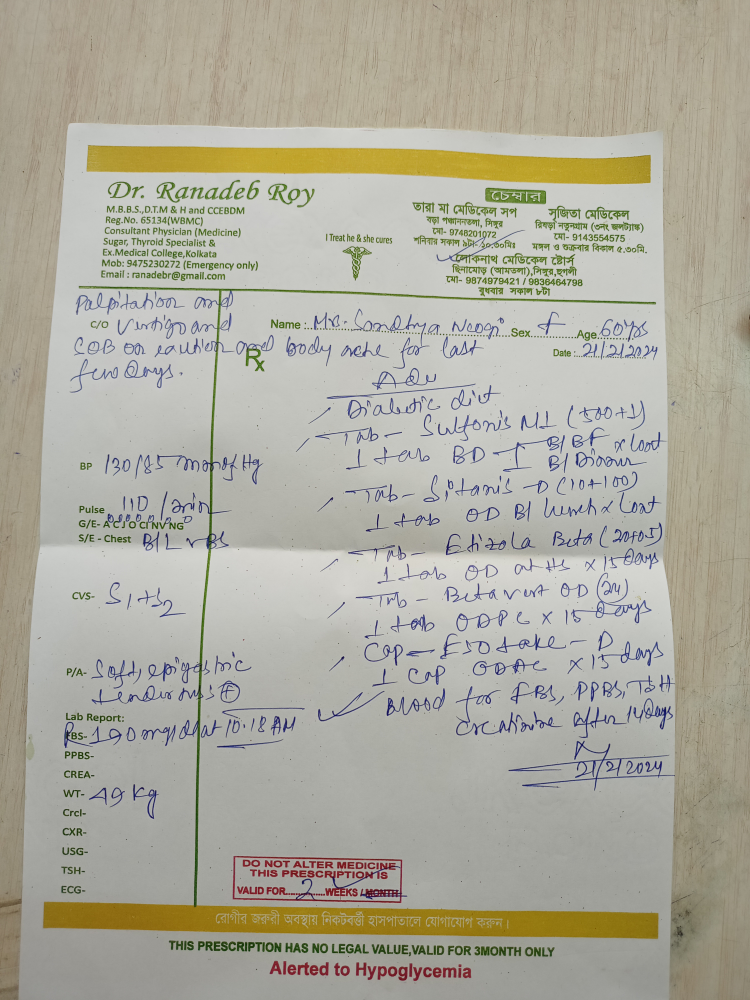 Dr. Ranadeb Roy
M.B.B.S.,D.T.M & H and CCEBDM
Reg.No. 65134(WBMC)
Consultant Physician (Medicine)
Sugar, Thyroid Specialist &
Ex.Medical College,Kolkata
Mob: 9475230272 (Emergency only)
Email : ranadebr@gmail.com
I Treat he & she cures
চেম্বার
তারা মা মেডিকেল সপ
বড়া পঞ্চাননতলা, সিঙ্গুর
মো- 9748201072
শনিবার সকাল ৯টা-১০.৩০মিঃ
সৃজিতা মেডিকেল
রিষড়া নতুনগ্রাম (৩নং জলট্যাঙ্ক)
মো- 9143554575
মঙ্গল ও শুক্রবার বিকাল ৫.৩০মি.
লোকনাথ মেডিকেল ষ্টোর্স
ছিনামোড় (আমতলা),সিঙ্গুর,হুগলী
মো- 9874979421 / 9836464798
বুধবার সকাল ৮টা
Palpitation and
C/O Vertigo and
SOB on and body ache for last
few Days.
Name : Mrs. Sandhya Neogi Sex f Age 60yrs
Date : 21/2/2024
Rx
Adv
Diabetic diet
Tab - Sulfonis M1 (500+1)
1 tab BD - 1 B/BF x Cont
1 B/Dinner
Tab - Sitanis - D (10+100)
1 tab OD B/ lunch x Cont
Tab - Etizola Beta (20+0.5)
1 tab OD at HS x 15 Days
Tab - Betavert OD (24)
1 tab OD PC x 15 Days
Cap - Esotake - D
1 Cap OD AC x 15 days
Blood for FBS, PPBS, TSH
Creatinine after 14 Days
21/2/2024
BP 130/85 mm of Hg
Pulse 110/min
G/E- A C J O CI NV NG
S/E - Chest B/L VBS
CVS- S1+S2
P/A- Soft, epigastric
tenderness +
Lab Report:
RBS- 190 mg/dl at 10.18 AM
PPBS-
CREA-
WT- 49 Kg
Crcl-
CXR-
USG-
TSH-
ECG-
DO NOT ALTER MEDICINE
THIS PRESCRIPTION IS
VALID FOR......2......WEEKS / MONTH
রোগীর জরুরী অবস্থায় নিকটবর্ত্তী হাসপাতালে যোগাযোগ করুন।
THIS PRESCRIPTION HAS NO LEGAL VALUE,VALID FOR 3MONTH ONLY
Alerted to Hypoglycemia